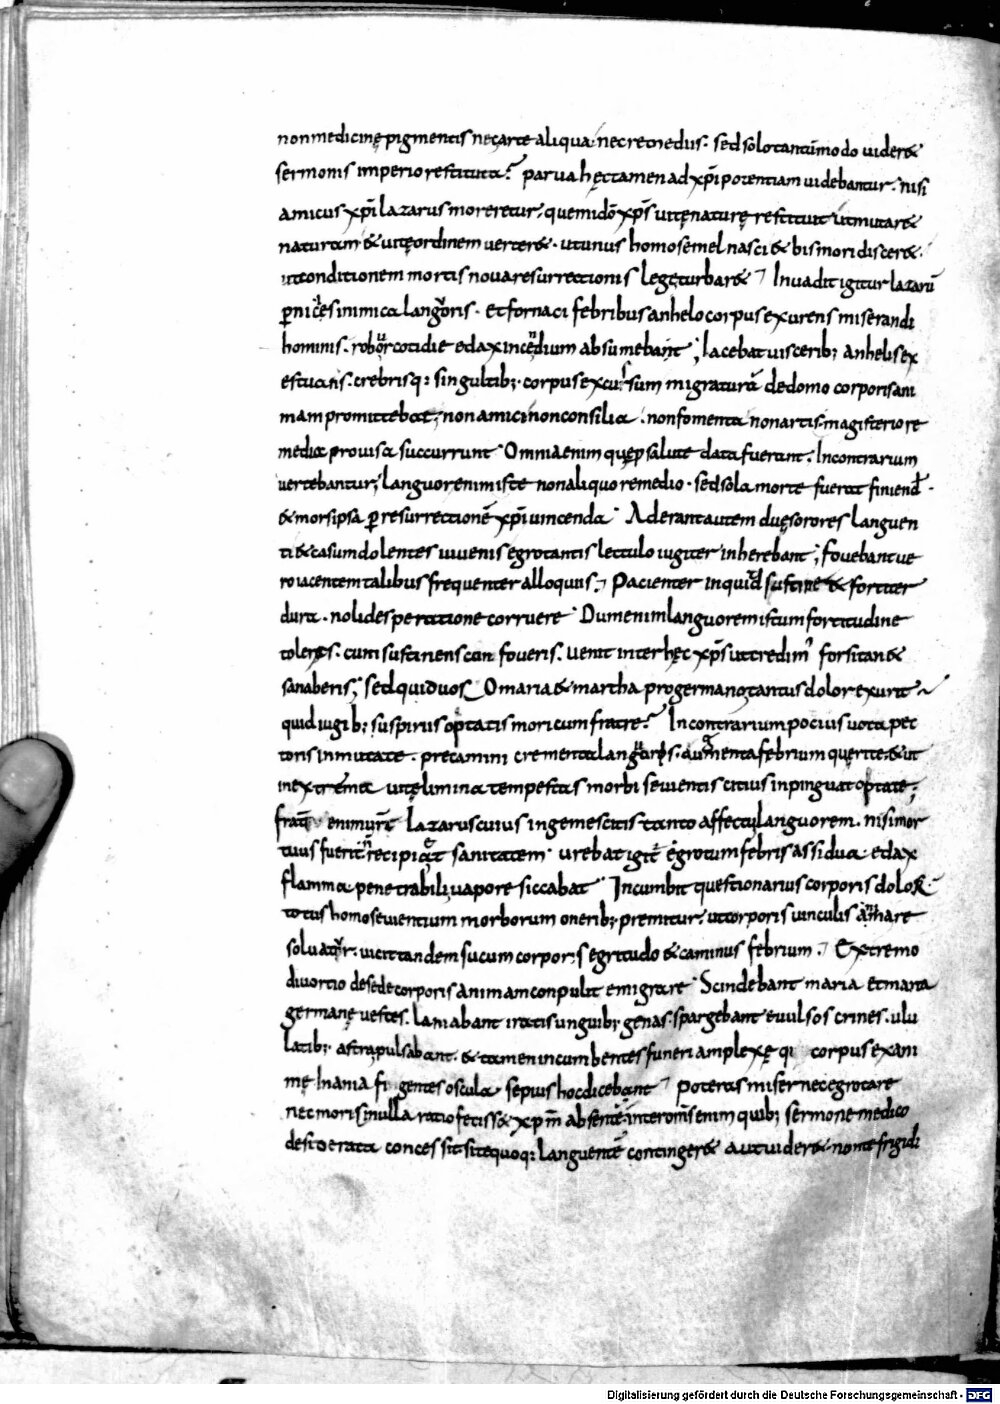 non medicinę pigmentis nec arte aliqua. nec remediis. sed solo tantūmodo uider&
sermonis imperio restituta? parua hęc tamen ad xp̄i potentiam uidebantur. nisi
amicus xp̄i lazarus moreretur, quemidō xp̄s uitę naturę restituit ut mutar&
naturam & uitę ordinem uerter&. ut unus homo semel nasci & bis mori discer&.
ut conditionem mortis noua resurrectionis lege turbar& Inuadit igitur lazarū
p̄nicies inimica langoris. et fornaci febribus anhelo corpus exurens miserandi
hominis. robor cotidie edax incendium absumebant; Iacebat uiscerib; anhelis ex
estuans. crebrisq: singultib; corpus excursum migraturā de domo corporis ani
mam promittebat, non amici non consilia. non fomenta non artis magisterio re
media prouisa succurrunt Omnia enim quę p salute data fuerant. In contrarium
uertebantur, Languor enim iste non aliquo remedio. sed sola morte fuerat finiend̄.
& mors ipsa p̄ resurrectionē xp̄i uincenda Aderant autem duę sorores languen
ti & casum dolentes iuuenis egrotantis lectulo iugiter inherebant; fouebant ue
ro iacentem talibus frequenter alloquiis, Pacienter inquid sustine & fortiter
dura. noli desperatione corruere Dum enim languorem istum fortitudine
toleras. cum sustinens con foueris. uenit inter hęc xp̄s ut credim' forsitan &
sanaberis; sed quid uos O maria & martha pro germano tantus dolor exurit
quid iugib; suspiriis optatis mori cum fratre? In contrarium pocius uota pec
toris inmutate. precamini crementa langoris. aumenta febrium querite. & ut
in extrema uitę limina tempestas morbi seuientis citius inpinguat optate;
frat̄ enim ur̄t Lazarus cuius ingemescitis tanto affectu languorem. nisi mor
tuus fuerit recipiat sanitatem urebat igit̄ egrotum febris assidua edax
flamma penetrabili uapore siccabat Incumbit questionarius corporis dolor.
totus homo seuientium morborum onerib; premitur. ut corporis uinculis amare
soluatur. uicit tandem sucum corporis egritudo & caminus febrium. Extremo
diuortio de sede corporis animam conpulit emigrare Scindebant maria et marta
germanę uestes. laniabant iratis unguib; genas. spargebant euulsos crines. ulu
latib; astra pulsabant. & tamen incumbentes funeri amplexę qi corpus exani
mę Inania fi gentes oscula. sepius hoc dicebant Poteras miser nec egrotare
nec mori si nulla ratio feciss& xp̄m absentē. inter om̄s enim quib; sermone medico
desiderata concessit. si te quoq: languentē continger& aut uider&. non te frigidi
Digitalisierung gefördert durch die Deutsche Forschungsgemeinschaft - DFG